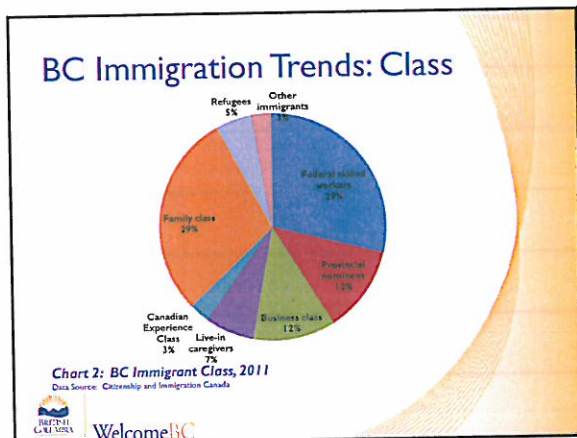 BC Immigration Trends: Class
Refugees
5%
Other
immigrants
3%
Federal skilled
workers
29%
Family class
29%
Provincial
nominees
12%
Business class
12%
Canadian
Experience
Class
3%
Live-in
caregivers
7%
Chart 2: BC Immigrant Class, 2011
Data Source: Citizenship and Immigration Canada
BRITISH
COLUMBIA
WelcomeBC